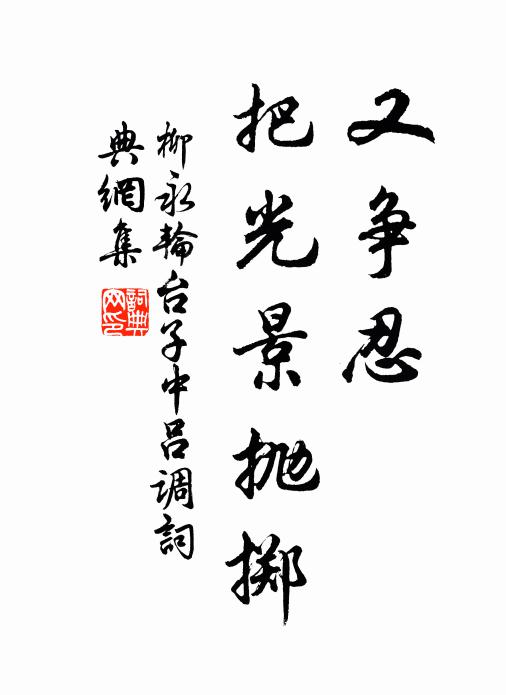 又争忍
把光景抛掷
柳永輪台子中呂调詞
典網集
詞典
网印